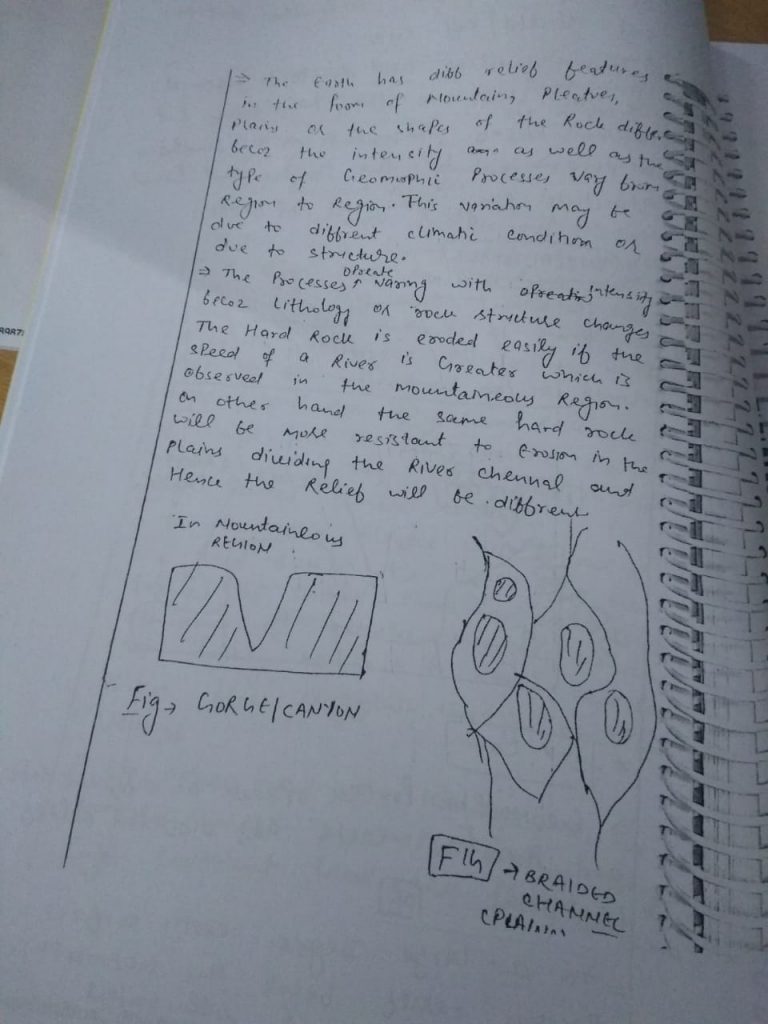 ⇒ The Earth has diff relief features
in the form of Mountains, Pleatues,
Plains or the shapes of the Rock differ
becoz the intencity as well as the
type of Geomorphic Processes vary from
Region to Region. This variation may be
due to diffrent climatic condition or
due to structure.
⇒ The Processes opreate varing with intensity
becoz Lithology or rock structure changes
The Hard Rock is eroded easily if the
speed of a River is Greater which is
observed in the mountaineous Region.
on other hand the same hard rock
will be more resistant to Erosion in the
Plains dividing the River chennal and
Hence the Relief will be different
In Mountaineous
REGION
Fig → GORGE/CANYON
FIG → BRAIDED
CHANNEL